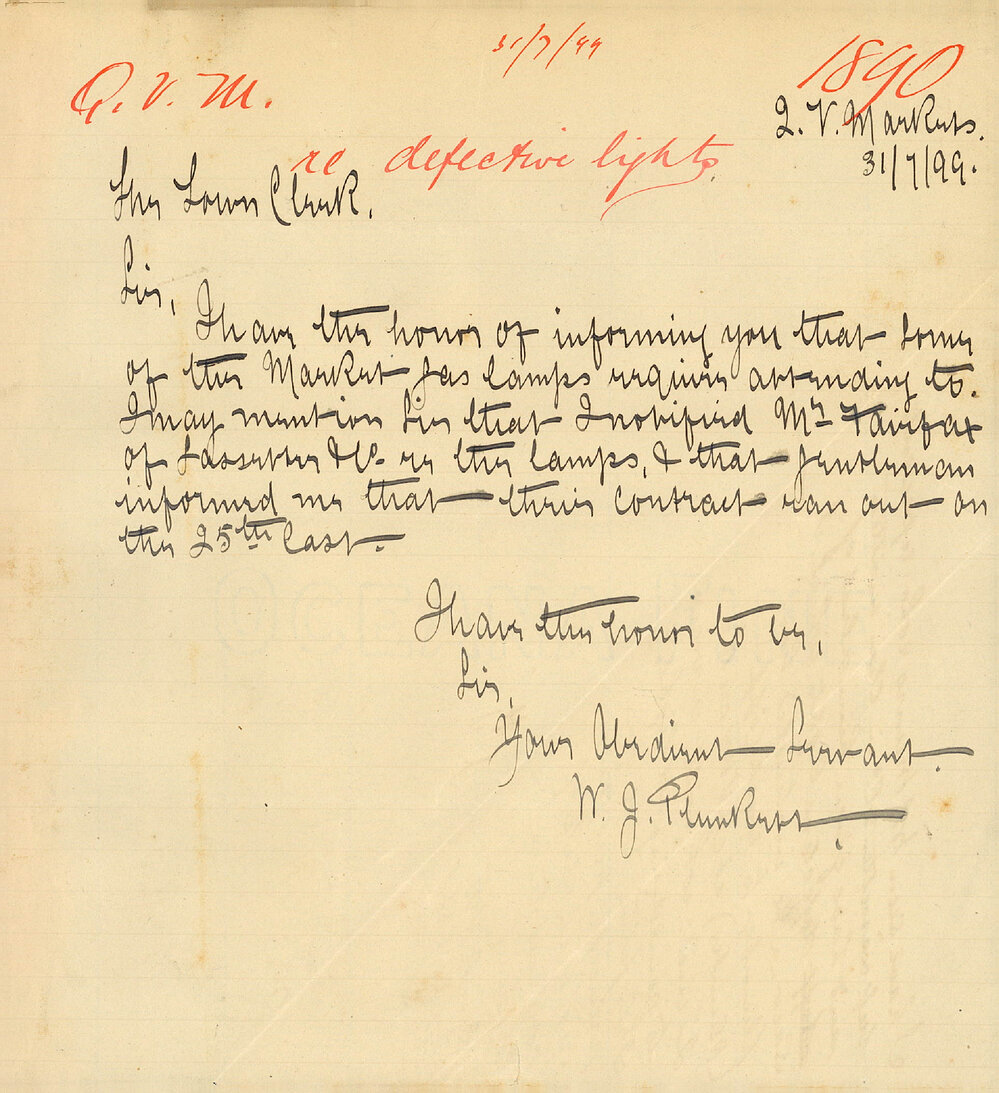 31/7/99
1890
Q. V. M.
Q. V. Markets.
31/7/99.
re defective lights
The Town Clerk.
Sir,
I have the honor of informing you that some
of the Market Gas lamps require attending to.
I may mention Sir that I notified Mr Fairfax
of Lassetter & Co. re the lamps, & that gentleman
informed me that their contract ran out on
the 25th last.
I have the honor to be,
Sir,
Your Obedient Servant.
W. J. Plunkett.